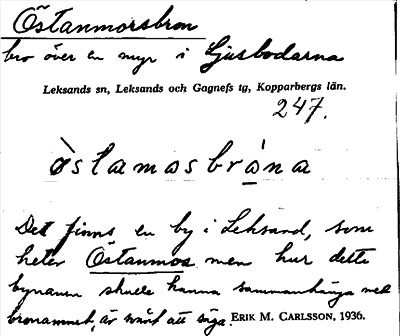 Östanmorsbron
bro över en myr i Ljusbodarna
Leksands sn, Leksands och Gagnefs tg, Kopparbergs län.
247.
òstamosbròna
Det finns en by i Leksand, som
heter Östanmos men hur detta
bynamn skulle kunna sammanhänga med
bronamnet, är svårt att säga.
ERIK M. CARLSSON, 1936.